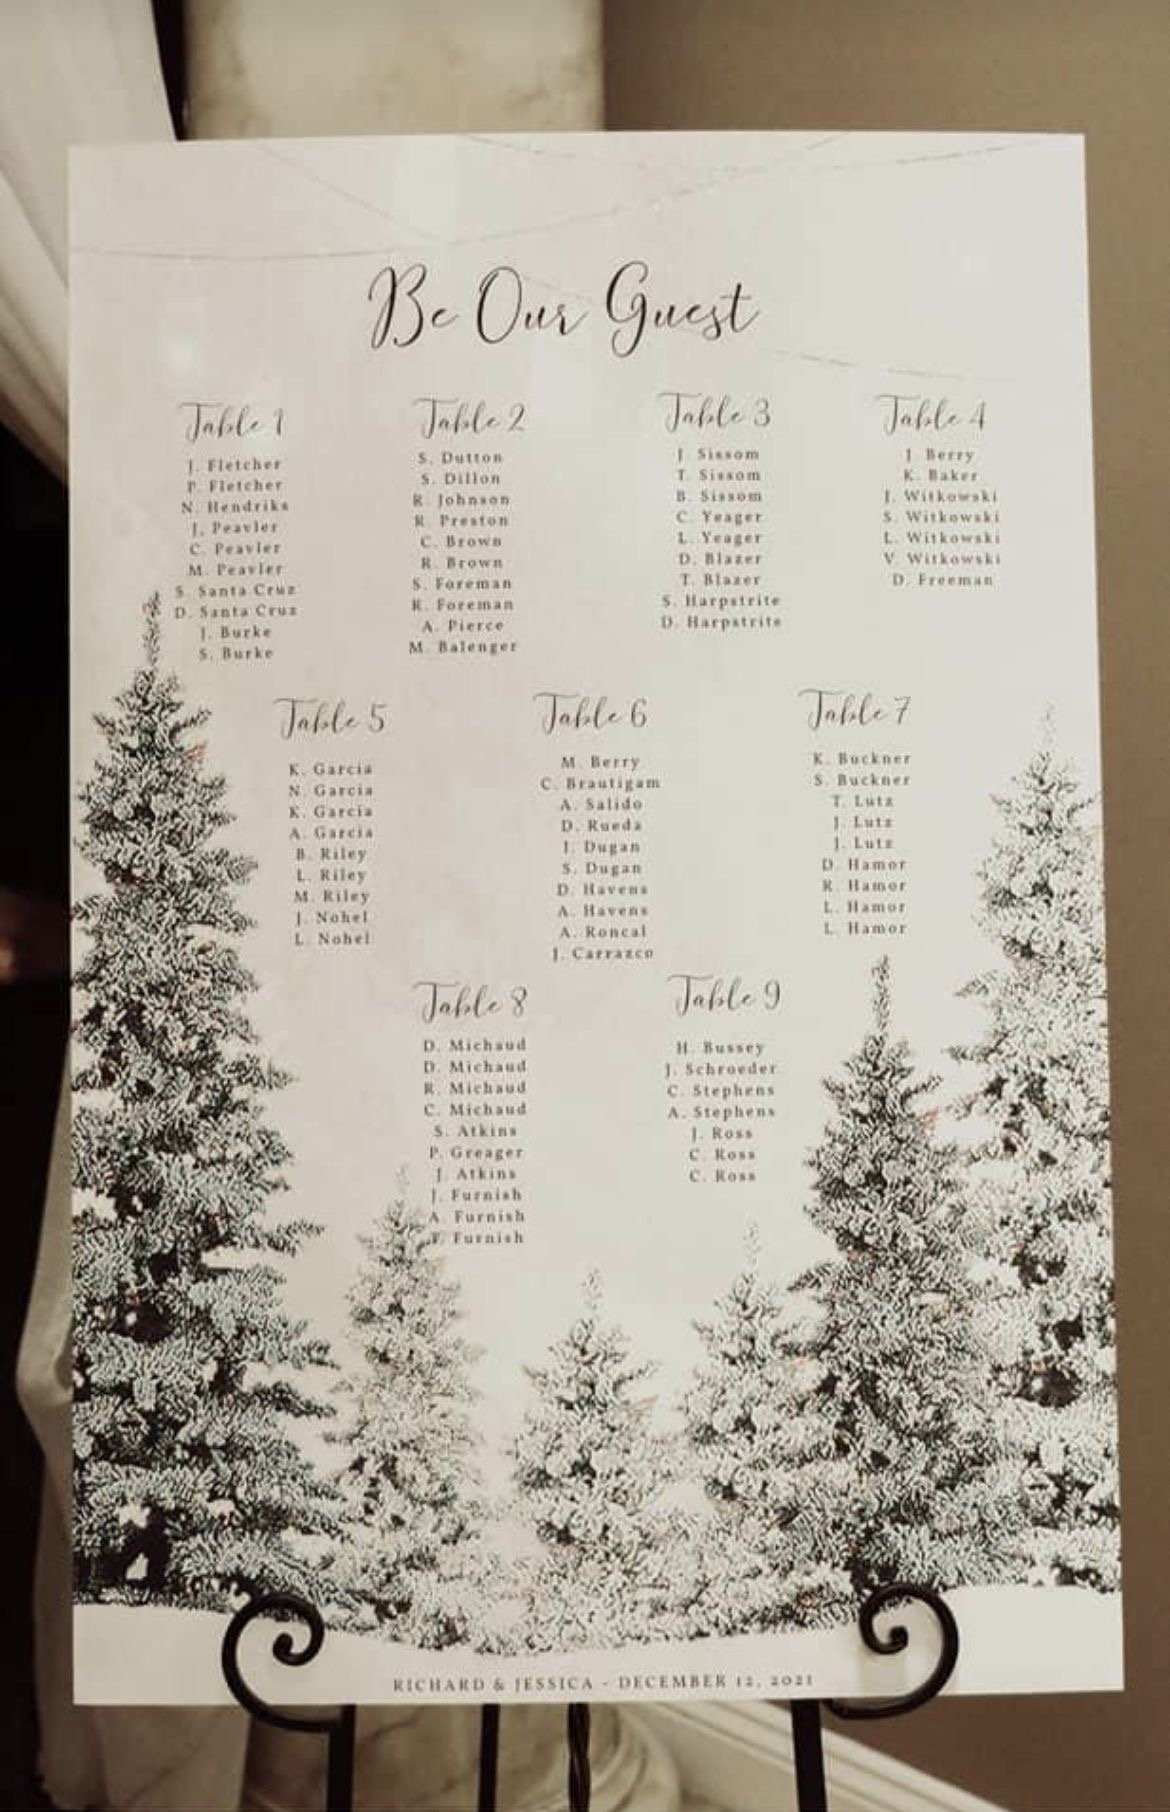 Be Our Guest
Table 1
J. Fletcher
P. Fletcher
N. Hendriks
J. Peavler
C. Peavler
M. Peavler
S. Santa Cruz
D. Santa Cruz
J. Burke
S. Burke
Table 2
S. Dutton
S. Dillon
R. Johnson
R. Preston
C. Brown
R. Brown
S. Foreman
R. Foreman
A. Pierce
M. Balenger
Table 3
J. Sissom
T. Sissom
B. Sissom
C. Yeager
L. Yeager
D. Blazer
T. Blazer
S. Harpstrite
D. Harpstrite
Table 4
J. Berry
K. Baker
J. Witkowski
S. Witkowski
L. Witkowski
V. Witkowski
D. Freeman
Table 5
K. Garcia
N. Garcia
K. Garcia
A. Garcia
B. Riley
L. Riley
M. Riley
J. Nohel
L. Nohel
Table 6
M. Berry
C. Brautigam
A. Salido
D. Rueda
J. Dugan
S. Dugan
D. Havens
A. Havens
A. Roncal
J. Carrazco
Table 7
K. Buckner
S. Buckner
T. Lutz
J. Lutz
J. Lutz
D. Hamor
R. Hamor
L. Hamor
L. Hamor
Table 8
D. Michaud
D. Michaud
R. Michaud
C. Michaud
S. Atkins
P. Greager
J. Atkins
J. Furnish
A. Furnish
Furnish
Table 9
H. Bussey
J. Schroeder
C. Stephens
A. Stephens
J. Ross
C. Ross
C. Ross
RICHARD & JESSICA - DECEMBER 12, 2021